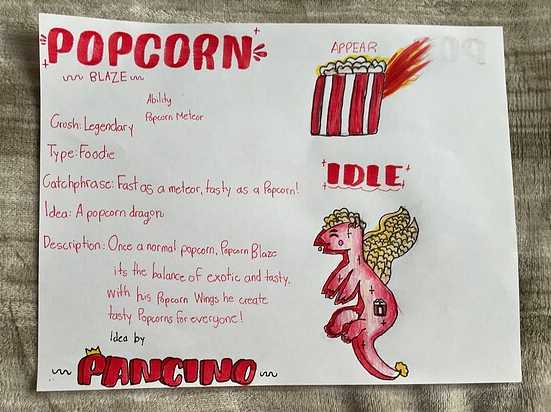 POPCORN
BLAZE
Ability
Popcorn Meteor
Crush: Legendary
Type: Foodie
Catchphrase: Fast as a meteor, tasty as a Popcorn!
Idea: A popcorn dragon
Description: Once a normal popcorn, Popcorn Blaze
its the balance of exotic and tasty,
with his Popcorn Wings he create
tasty Popcorns for everyone!
Idea by
PANCINO
APPEAR
IDLE